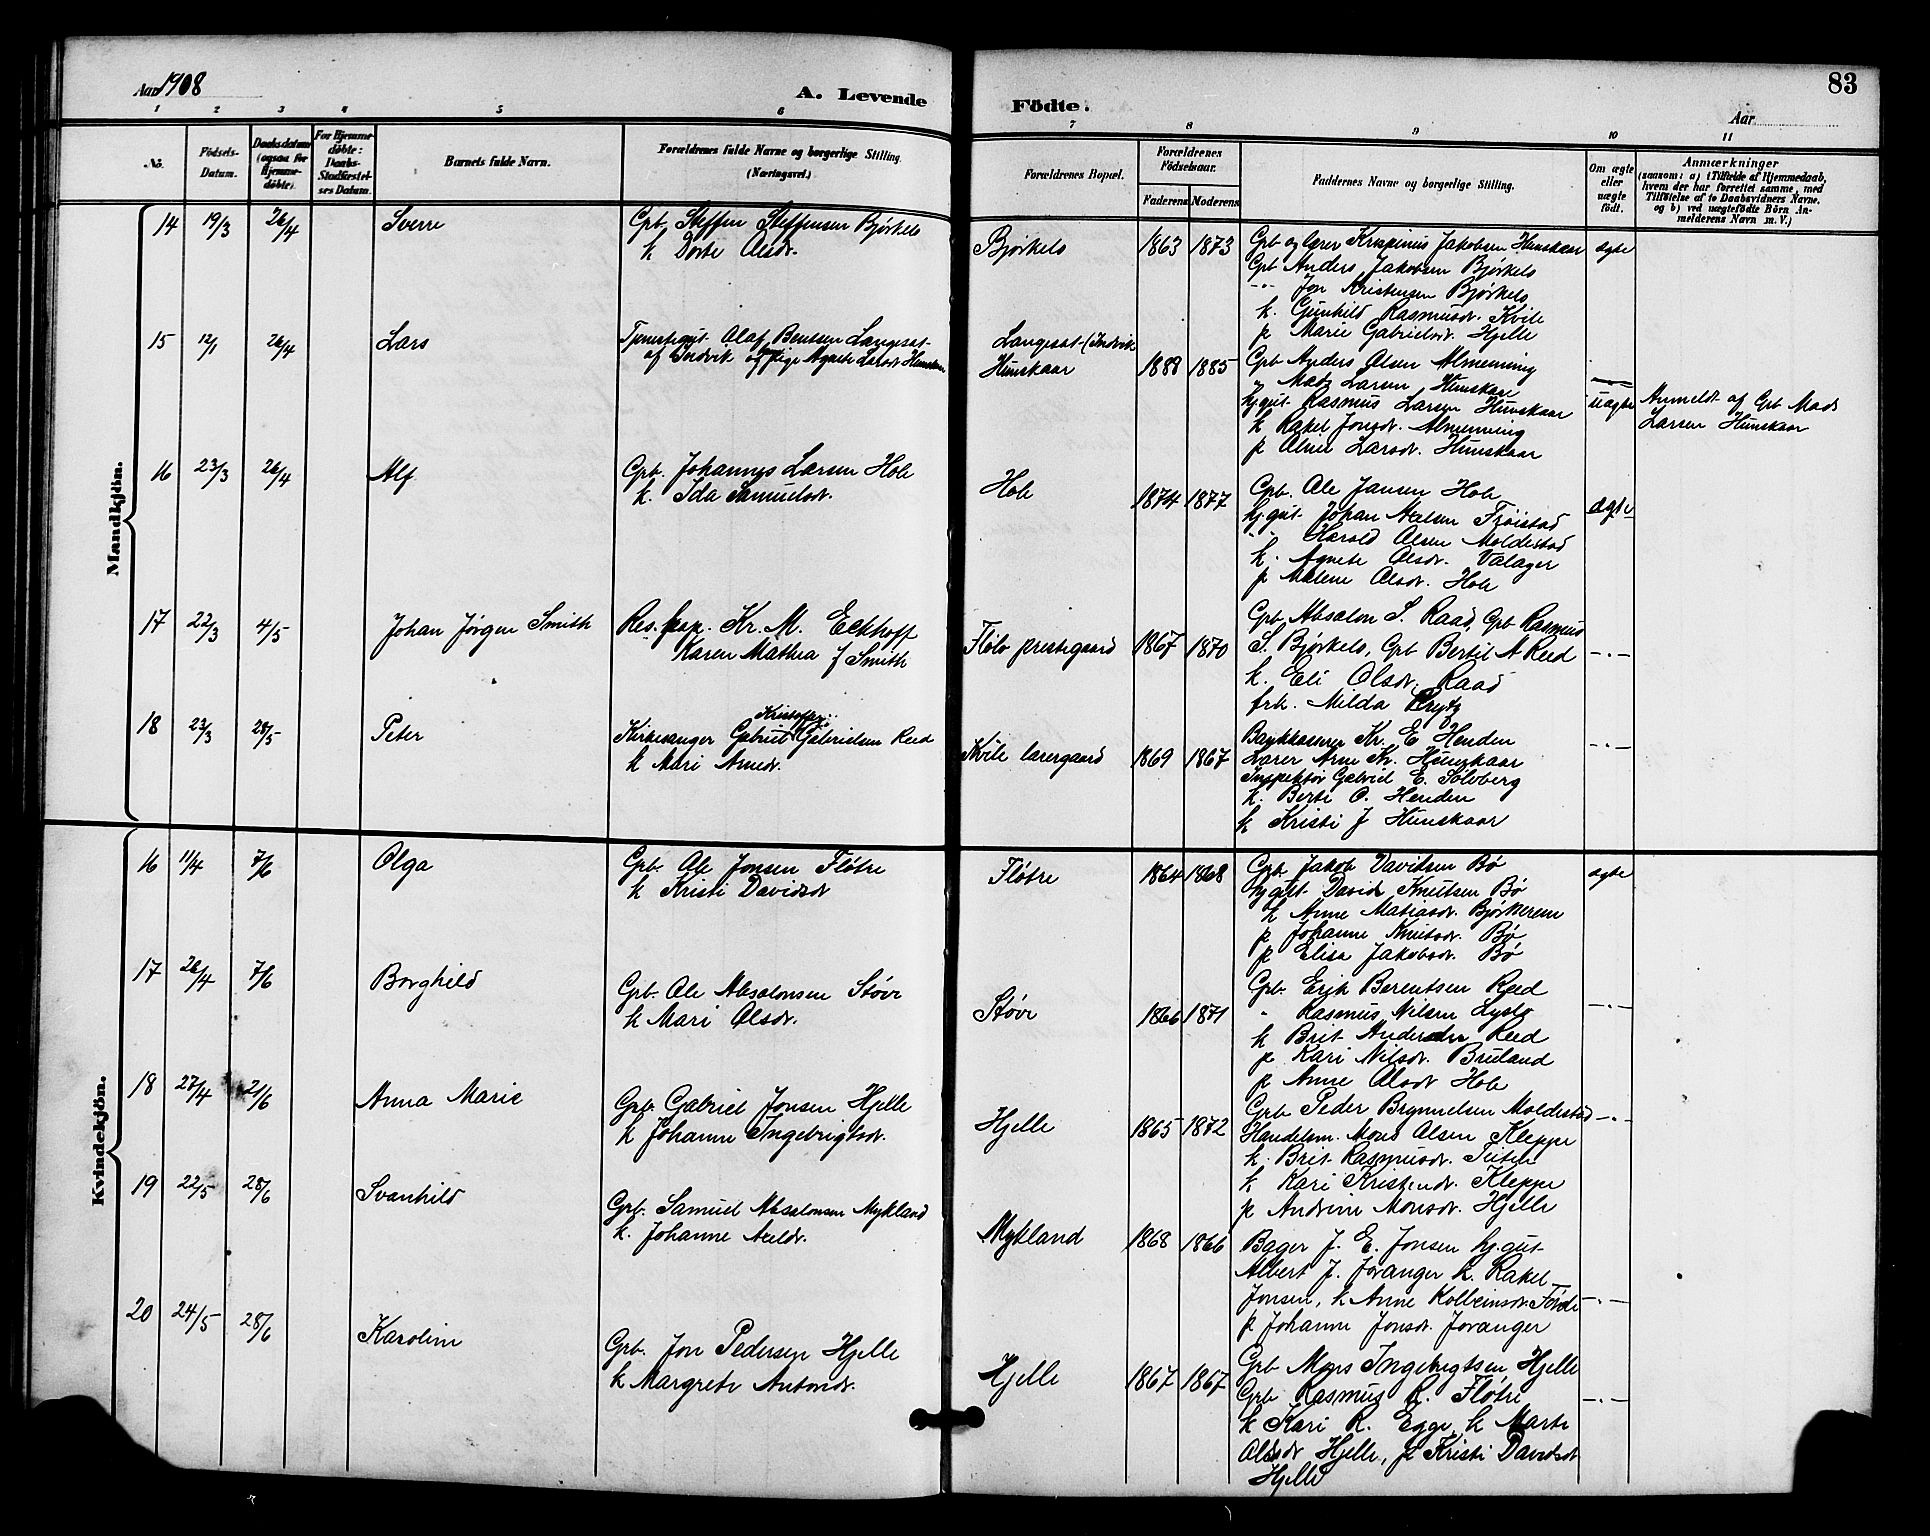 Aar 1908
A. Levende
Födte.
Aar
83
1 2 3 4 5 6 7 8 9 10 11
No.
Födsels-Datum.
Daabsdatum (ogsaa for Hjemmedöbte).
For Hjemmedöbte: Daabs-Stadfæstelses Datum.
Barnets fulde Navn.
Forældrenes fulde Navne og borgerlige Stilling. (Næringsvei.)
Forældrenes Bopæl.
Forældrenes Födselsaar.
Faderens Moderens
Faddernes Navne og borgerlige Stilling.
Om ægte eller uægte födt.
Anmærkninger
(saasom: a) Tilfælde af Hjemmedaab, hvem der har forrettet samme, med Tilföielse af to Daabsvidners Navne, og b) ved uægtefödte Börn Anmelderens Navn m. V.)
Mandkjön.
14 19/3 26/4 Sverre
Grb. Steffen Steffensen Bjørkelo
k Dorte Olsdr.
Bjørkelo 1863 1873
Grb og lærer Krispinius Jakobsen Hunskaar ægte
Grb Anders Jakobsen Bjørkelo
-"- Jon Kristensen Bjørkelo
k. Gunhild Rasmusdr. Kvile
p Marie Gabrielsdr. Hjelle
15 12/1 26/4 Lars
Tjenestegut Olaf Bentsen Langesæt
af Indvik og pige Agnete Larsdr Hunskaar
Langesæt (Indvik
Hunskaar 1888 1885
Grb Anders Olsen Almenning
" Mats Larsen Hunskaar
hj.gut Rasmus Larsen Hunskaar uægte
k Rakel Jonsdr. Almenning
p Oline Larsdr. Hunskaar
Anmeldt af Grb Mads
Larsen Hunskaar
16 23/3 26/4 Alf
Grb. Johannes Larsen Hole
k. Ida Samuelsdr.
Hole 1874 1877
Grb. Ole Jansen Hole ægte
hj.gut Johan Axelsen Frøistad
" Harald Olsen Moldestad
k. Agnete Olsdr. Valager
p Malene Olsdr. Hole
17 22/3 4/5 Johan Jørgen Smith
Res. kap. Kr. M. Eckhoff
Karen Mathea f Smith
Fløtø prestegaard 1867 1870
Grb Absalon S. Raad, Grb Rasmus
S. Bjørkelo, Grb Bertil A Reed -"-
k. Eli Olsdr. Raad
frk. Milda Crytz
18 23/3 28/5 Peter
Kristoffer
Kirkesanger Gabriel Gabrielsen Reed
k Mari Arnedr.
Kvile lærergaard 1869 1867
Bankkasserer Kr. E Henden -"-
Lærer Arne Kr. Hunskaar
Inspektør Gabriel E. Solvberg
k. Berte O. Henden
k Kristi J Hunskaar
Kvindekjön.
16 11/4 7/6 Olga
Grb. Ole Jonsen Fløtre
k Kristi Davidsdr
Fløtre 1864 1868
Grb Jakob Davidsen Bø ægte
hj.gut David Knutsen Bø
k Anne Matiasdr. Bjørkerem
p Johanne Knutsdr. Bø
p Elisa Jakobsdr. Bø
17 26/4 7/6 Borghild
Grb. Ole Absalonsen Støve
k Mari Olsdr.
Støve 1866 1871
Grb. Erik Berentsen Reed -"-
" Rasmus Nilsen Lyslo
k Brit Andersdr Reed
p Kari Nilsdr. Bruland
p Anne Olsdr Hole
18 27/4 21/6 Anna Marie
Grb Gabriel Jonsen Hjelle
k Johanne Ingebrigtsdr.
Hjelle 1865 1872
Grb Peder Brynnelsen Moldestad -"-
Handelsm. Mons Olsen Kleppe
k. Brit Rasmusdr.
k Kari Kristendr. Kleppe
p Andrine Monsdr. Hjelle
19 22/5 28/6 Svanhild
Grb. Samuel Absalonsen Mykland
k. Johanne Axeldr.
Mykland 1868 1866
Bager J. E. Jonsen hj.gut
Albert J. Joranger k. Rakel
Jonsen, k Anne Kolbeinsdr. Førde -"-
p Johanne Jonsdr. Joranger
20 24/5 28/6 Karoline
Grb. Jon Pedersen Hjelle
k Margrete Antondr.
Hjelle 1867 1867
Grb Mons Ingebrigtsen Hjelle
Grb Rasmus R. Fløtre -"-
k Kari R. Egge, k Marte
Olsdr Hjelle, p Kristi Davidsdr
Hjelle